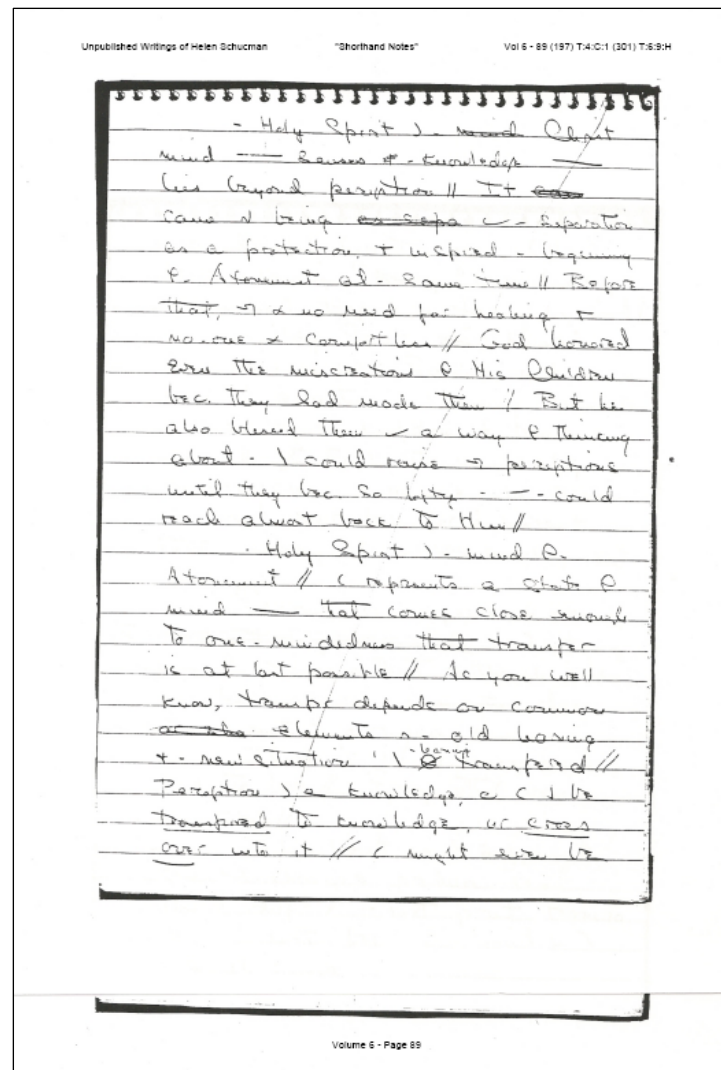 Unpublished Writings of Helen Schucman "Shorthand Notes" Vol 6 - 89 (197) T:4:C:1 (301) T:5:9:H
- Holy Spirit ) - mind Christ
mind — senses + - knowledge —
lies beyond perception // It
came being sepa - separation
as a protection, + inspired - beginning
Atonement at - same time // Before
that, no need for healing +
no-one comfortless // God honored
even the miscreations His Children
bec. they had made them // But he
also blessed them a way thinking
about - could raise perceptions
until they bec. so lofty - - could
reach almost back to Him //
- Holy Spirit ) - mind
Atonement // ( represents a state
mind — that comes close enough
to one-mindedness that transfer
is at last possible // As you well
know, transfer depends on common
elements - old
+ - new situation transferred //
Perception ) knowledge, be
transferred to knowledge, or cross
over into it // ( might even be
Volume 6 - Page 89